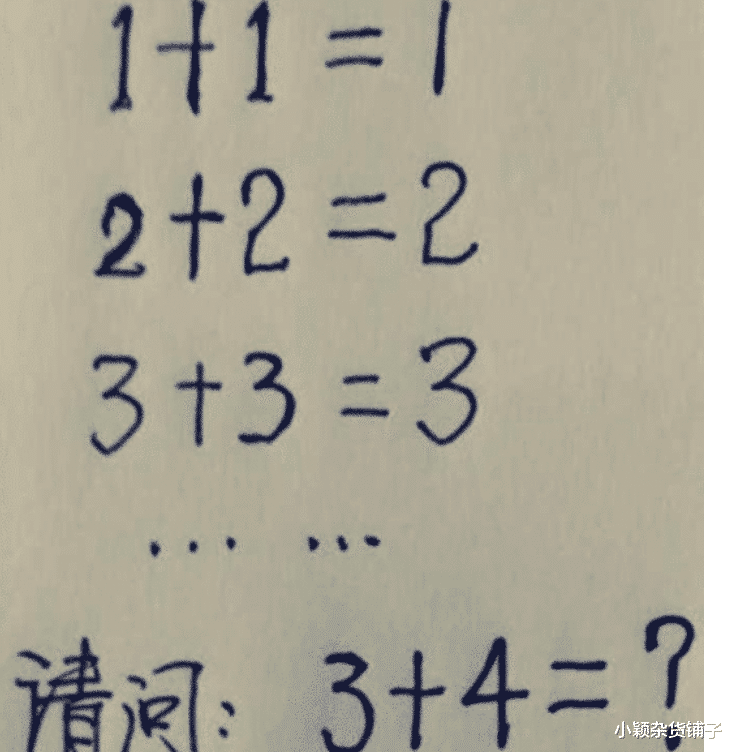 1+1=1
2+2=2
3+3=3
... ...
请问: 3+4=?
小颖杂货铺子